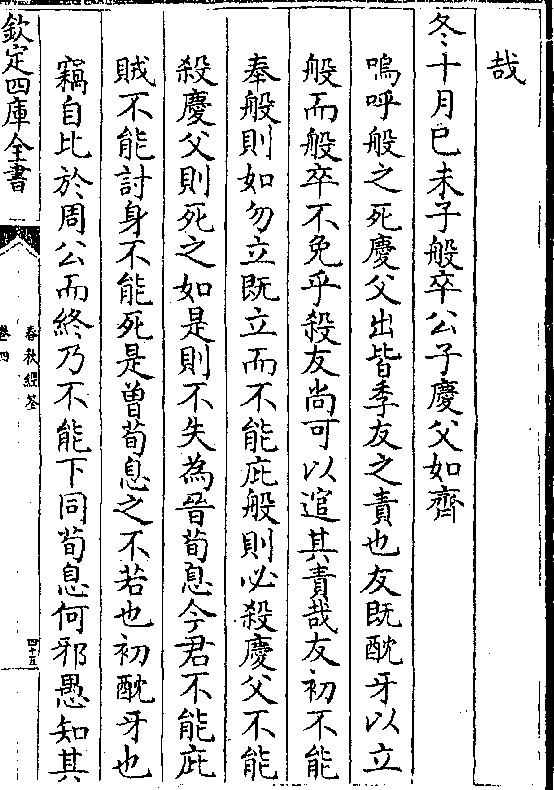 哉
冬十月已未子般卒公子慶父如齊
嗚呼般之死慶父出皆季友之責也友既酖牙以立
般而般卒不免乎殺友尚可以逭其責哉友初不能
奉般則如勿立既立而不能庇般則必殺慶父不能
殺慶父則死之如是則不失為晉荀息今君不能庇
賊不能討身不能死是曽荀息之不若也初酖牙也
竊自比於周公而終乃不能下同荀息何邪愚知其
欽定四庫全書
春秋經筌
卷四
四十五